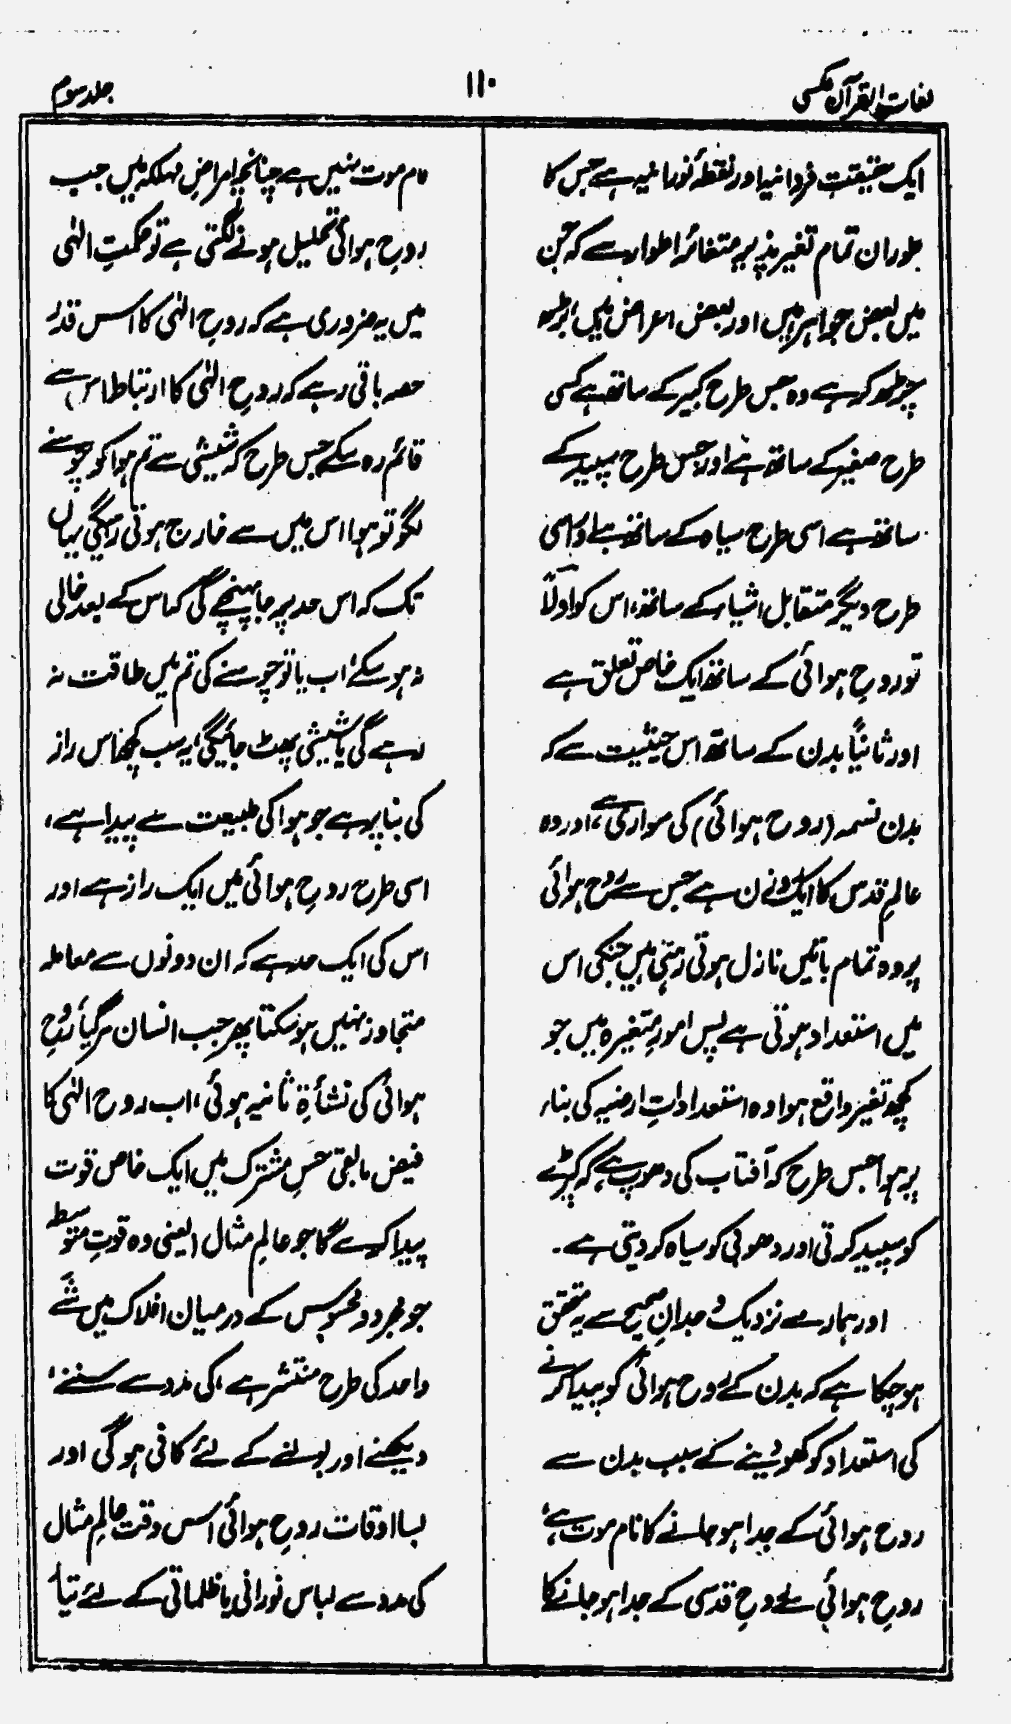 لغات القرآن عکسی
۱۱۰
جلد سوم
ایک حقیقتِ فردانیہ اور نقطۂ نورانیہ ہے جس کا
طوران تمام تغیر پذیر متغائر اطوار سے کہ جن
میں بعض جواہر ہیں اور بعض اعراض ہیں بڑھ
چڑھ کر ہے وہ جس طرح کبیر کے ساتھ ہے کسی
طرح صغیر کے ساتھ ہے اور جس طرح سپید کے
ساتھ ہے اسی طرح سیاہ کے ساتھ ہے اور اسی
طرح دیگر متقابل اشیاء کے ساتھ، اس کو اولاً
تو روحِ ہوائی کے ساتھ ایک خاص تعلق ہے
اور ثانیاً بدن کے ساتھ اس حیثیت سے کہ
بدن نسمہ (روح ہوائی) کی سواری ہے، اور وہ
عالمِ قدس کا ایک روزن ہے جس سے روح ہوائی
پر وہ تمام باتیں نازل ہوتی رہتی ہیں جنکی اس
میں استعداد ہوتی ہے پس امورِ متغیرہ میں جو
کچھ تغیر واقع ہوا وہ استعداداتِ ارضیہ کی بناء
پر ہوا جس طرح کہ آفتاب کی دھوپ ہے، کہ کپڑے
کو سپید کرتی اور دھوبی کو سیاہ کر دیتی ہے۔
اور ہمارے نزدیک وجدانِ صحیح سے یہ متحقق
ہوچکا ہے کہ بدن کے روح ہوائی کو پیدا کرنے
کی استعداد کو کھو دینے کے سبب بدن سے
روح ہوائی کے جدا ہو جانے کا نام موت ہے،
روحِ ہوائی سے روحِ قدسی کے جدا ہو جانے کا
نام موت نہیں ہے چنانچہ امراضِ مہلکہ میں جب
روحِ ہوائی تحلیل ہونے لگتی ہے تو حکمتِ الٰہی
میں یہ ضروری ہے کہ روحِ الٰہی کا اس قدر
حصہ باقی رہے کہ روحِ الٰہی کا ارتباط اس سے
قائم رہ سکے جس طرح کہ شیشی سے تم ہوا کو چوسنے
لگو تو ہوا اس میں سے خارج ہوتی رہیگی یہاں
تک کہ اس حد پر جا پہنچے گی کہ اس کے بعد خالی
نہ ہو سکے، اب یا تو چوسنے کی تم میں طاقت نہ
رہے گی یا شیشی پھٹ جائیگی، یہ سب کچھ اس راز
کی بنا پر ہے جو ہوا کی طبیعت سے پیدا ہے،
اسی طرح روحِ ہوائی میں ایک راز ہے اور
اس کی ایک حد ہے کہ ان دونوں سے معاملہ
متجاوز نہیں ہو سکتا پھر جب انسان مر گیا تو روحِ
ہوائی کی نشأۃِ ثانیہ ہوئی، اب روح الٰہی کا
فیض مابقی حسِ مشترک میں ایک خاص قوت
پیدا کرے گا جو عالمِ مثال (یعنی وہ قوتِ متوسطہ
جو مجرد و محسوس کے درمیان افلاک میں شے
واحد کی طرح منتشر ہے، کی مدد سے سننے،
دیکھنے اور بولنے کے لئے کافی ہوگی اور
بسا اوقات روحِ ہوائی اس وقت عالمِ مثال
کی مدد سے لباس نورانی یا ظلماتی کے لئے تیار